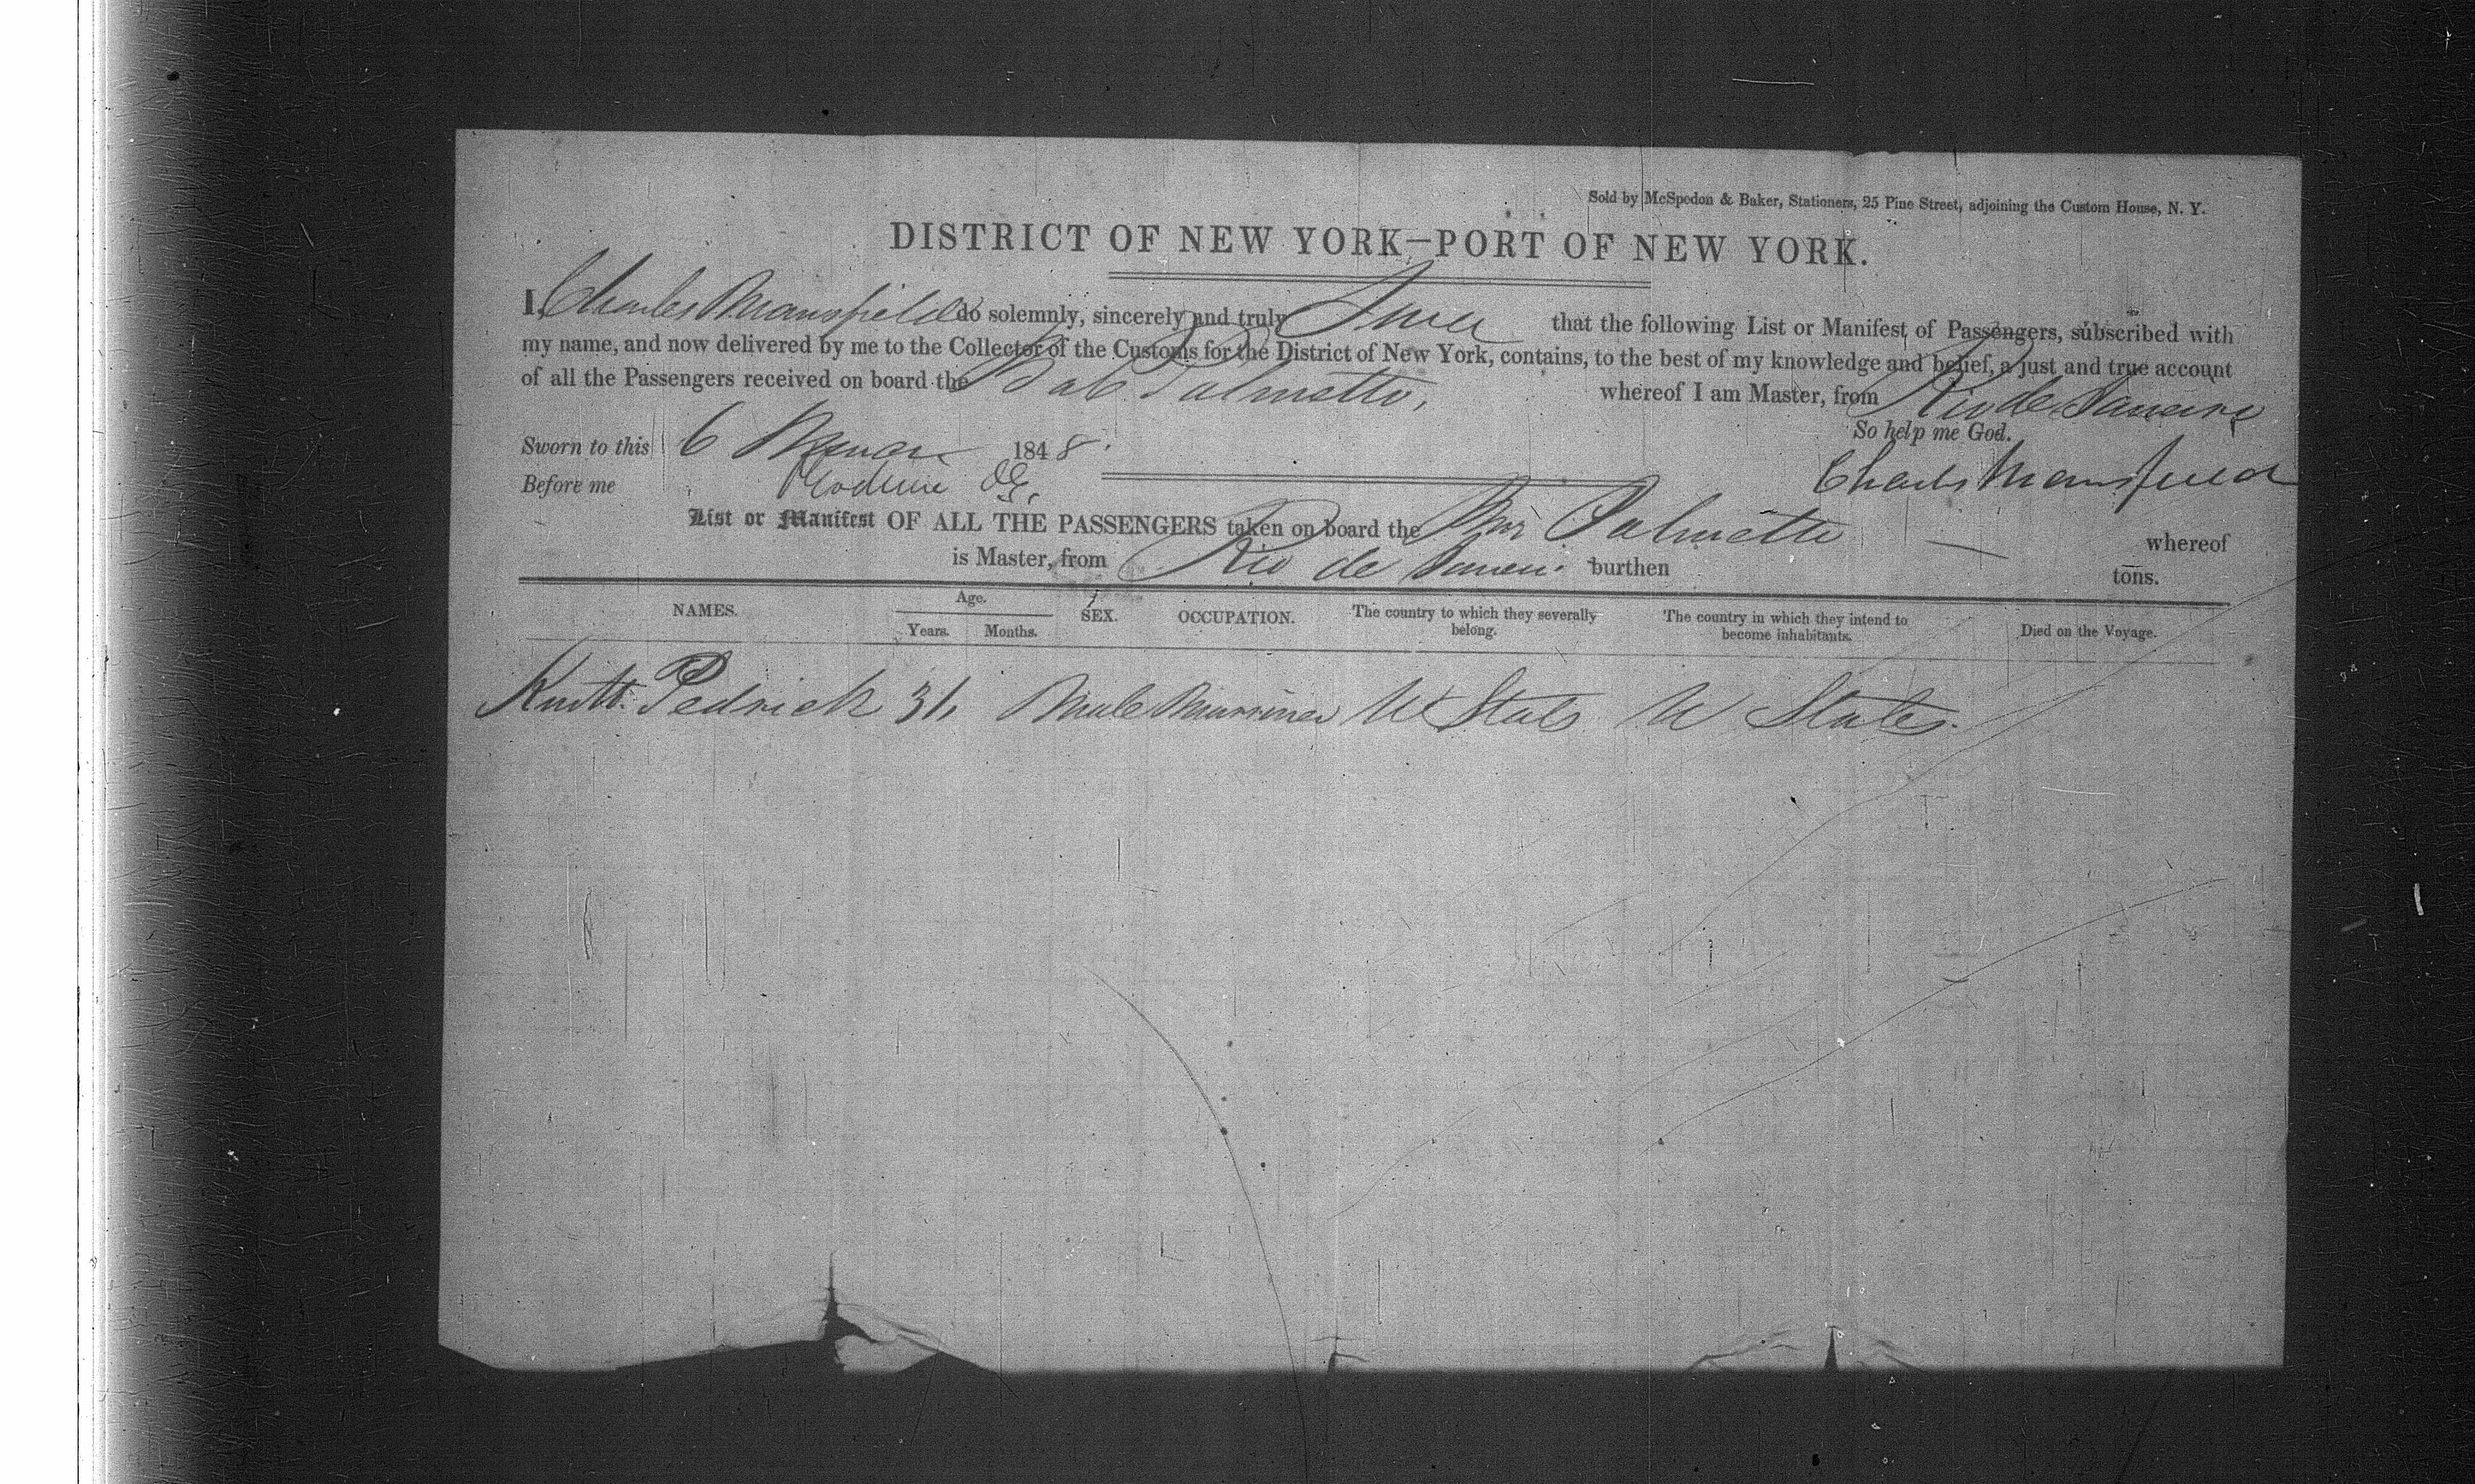 Sold by McSpedon & Baker, Stationers, 25 Pine Street, adjoining the Custom House, N. Y.
DISTRICT OF NEW YORK—PORT OF NEW YORK.
I, Charles Mansfield do solemnly, sincerely and truly that the following List or Manifest of Passengers, subscribed with
my name, and now delivered by me to the Collector of the Customs for the District of New York, contains, to the best of my knowledge and belief, a just and true account
of all the Passengers received on board the Palmetto, whereof I am Master, from Rio de Janeiro
So help me God.
Sworn to this 6 1848.
Charles Mansfield
Before me
List or Manifest OF ALL THE PASSENGERS taken on board the Palmetto whereof
is Master, from Rio de burthen tons.
NAMES. Age. Years. Months. SEX. OCCUPATION. The country to which they severally belong. The country in which they intend to become inhabitants. Died on the Voyage.
Pedrick 31, Male Marriner U States U States.